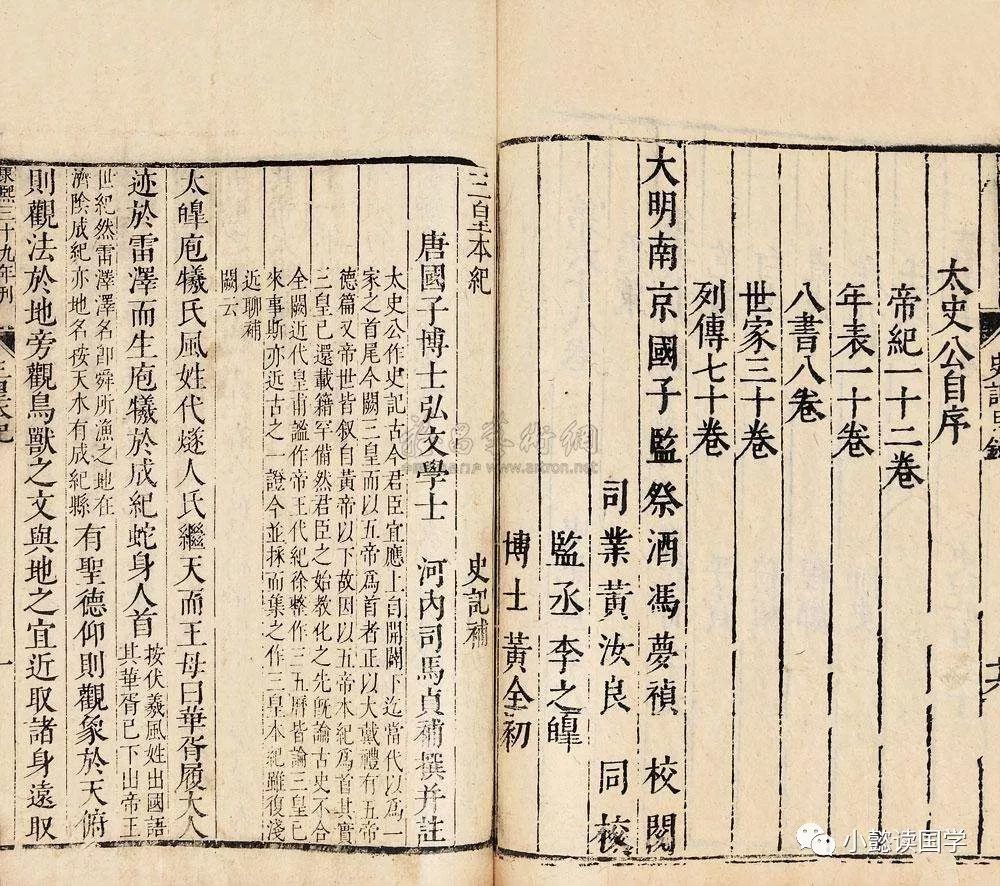 史記目錄
太史公自序
帝紀一十二卷
年表一十卷
八書八卷
世家三十卷
列傳七十卷
大明南京國子監祭酒馮夢禎　校閱
司業黃汝良　同校
監丞李之皥
博士黃全初
三皇本紀　史記補
唐國子博士弘文學士　河內司馬貞補撰并註
太史公作史記古今君臣宜應上自開闢下迄當代以爲一
家之首尾今闕三皇而以五帝爲首者正以大戴禮有五帝
德篇又帝世皆叙自黃帝以下故因以五帝本紀爲首其實
三皇已還載籍罕備然君臣之始教化之先旣論古史不合
全闕近代皇甫謐作帝王代紀徐整作三五曆皆論三皇已
來事斯亦近古之一證今並採而集之作三皇本紀雖復淺
近聊補
闕云
太皥庖犧氏風姓代燧人氏繼天而王母曰華胥履大人
迹於雷澤而生庖犧於成紀蛇身人首
按伏羲風姓出國語
其華胥已下出帝王
世紀然雷澤澤名即舜所漁之地在
濟陰成紀亦地名按天水有成紀縣
有聖德仰則觀象於天俯
則觀法於地旁觀鳥獸之文與地之宜近取諸身遠取
康熙三十九年刊
三皇本紀
一
雅昌藝術網
artron.net
小懿读国学